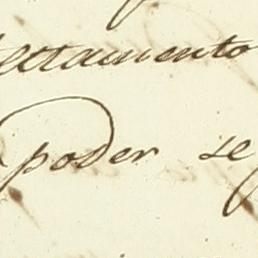 testamento
poder se